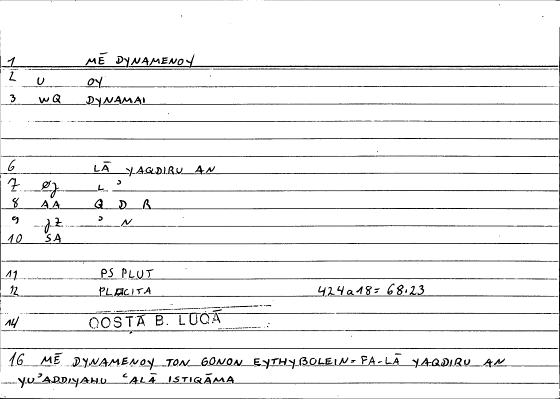 1 MĒ DYNAMENOY
2 U OY
3 WQ DYNAMAI
6 LĀ YAQDIRU AN
7 ØJ L ʾ
8 AA Q D R
9 JZ ʾ N
10 SA
11 PS PLUT
12 PLACITA 424a18 = 68,23
14 QOSTĀ B. LUQĀ
16 MĒ DYNAMENOY TON GONON EYTHYBOLEIN = FA-LĀ YAQDIRU AN
YUʾADDIYAHU ʿALĀ ISTIQĀMA